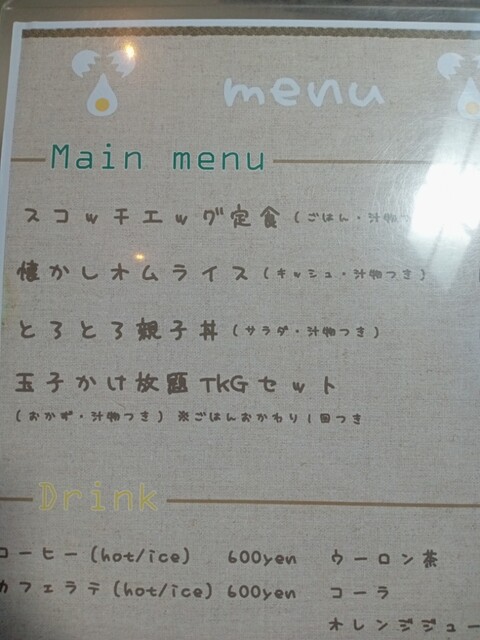 menu
Main menu
スコッチエッグ定食 (ごはん・汁物つ
懐かしオムライス (キッシュ・汁物つき)
とろとろ親子丼 (サラダ・汁物つき)
玉子かけ放題TKGセット
(おかず・汁物つき) ※ごはんおかわり1回つき
Drink
コーヒー(hot/ice) 600yen ウーロン茶
カフェラテ(hot/ice) 600yen コーラ
オレンジジュー